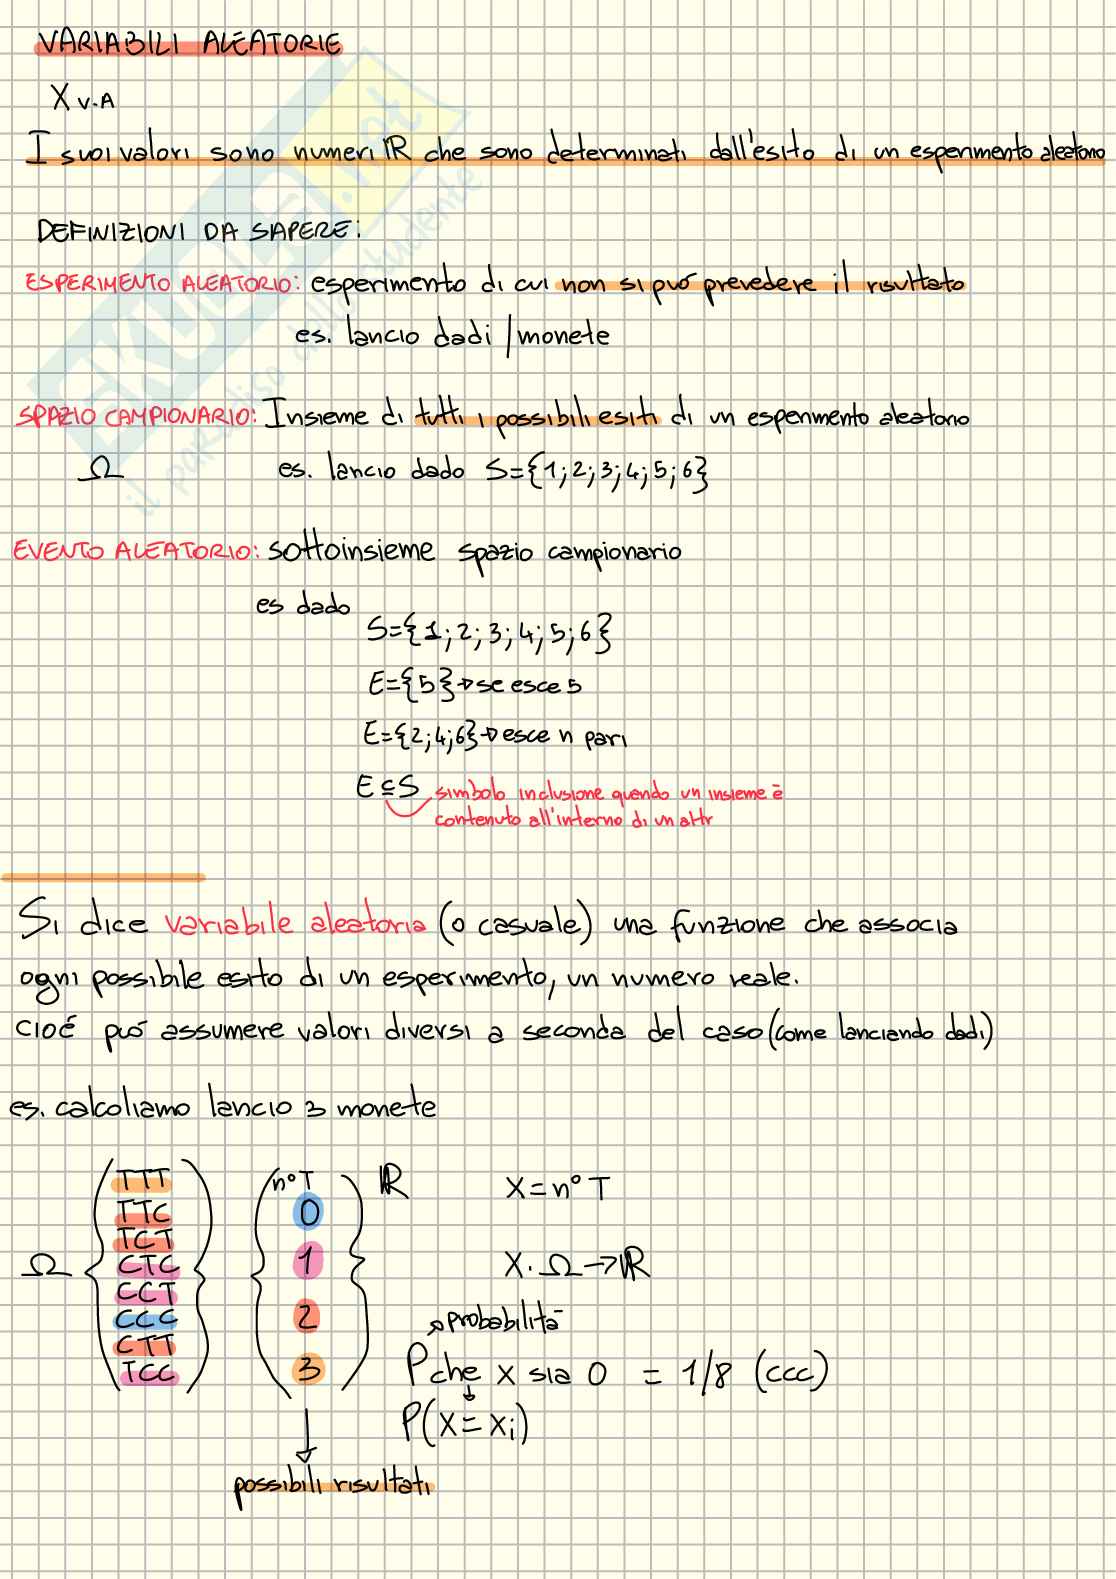 VARIABILI ALEATORIE
X v.A
I suoi valori sono numeri ℝ che sono determinati dall'esito di un esperimento aleatorio
DEFINIZIONI DA SAPERE:
ESPERIMENTO ALEATORIO: esperimento di cui non si può prevedere il risultato
es. lancio dadi / monete
SPAZIO CAMPIONARIO: Insieme di tutti i possibili esiti di un esperimento aleatorio
Ω es. lancio dado S={1;2;3;4;5;6}
EVENTO ALEATORIO: sottoinsieme spazio campionario
es dado
S={1;2;3;4;5;6}
E={5}→se esce 5
E={2;4;6}→esce n pari
E⊆S simbolo inclusione quando un insieme è
contenuto all'interno di un altr
Si dice variabile aleatoria (o casuale) una funzione che associa
ogni possibile esito di un esperimento, un numero reale.
cioé può assumere valori diversi a seconda del caso (come lanciando dadi)
es. calcoliamo lancio 3 monete
Ω
TTT
TTC
TCT
CTC
CCT
CCC
CTT
TCC
n°T
0
1
2
3
ℝ
possibili risultati
X=n°T
X. Ω→ℝ
probabilità
P che X sia 0 = 1/8 (ccc)
P(X=xi)
SKUOLA.net
il paradiso dello studente